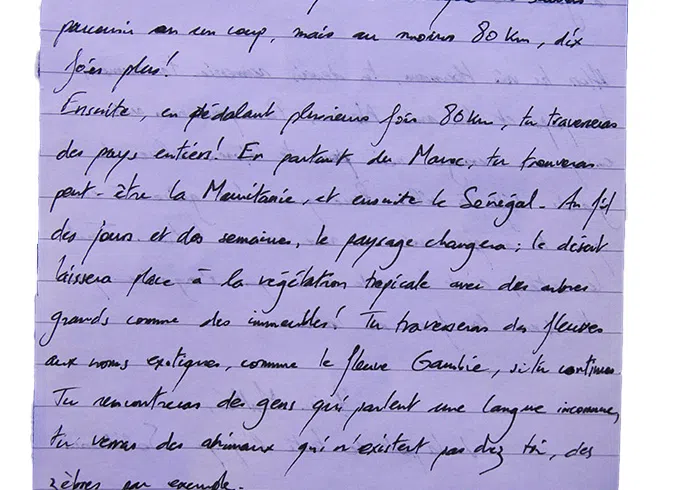 parcourir en un coup, mais au moins 80 km, dix
fois plus!
Ensuite, en pédalant plusieurs fois 80 km, tu traverseras
des pays entiers! En partant du Maroc, tu trouveras
peut-être la Mauritanie, et ensuite le Sénégal. Au fil
des jours et des semaines, le paysage changera ; le désert
laissera place à la végétation tropicale avec des arbres
grands comme des immeubles! Tu traverseras des fleuves
aux noms exotiques, comme le fleuve Gambie, si tu continues
Tu rencontreras des gens qui parlent une langue inconnue,
tu verras des animaux qui n'existent pas chez toi, des
zèbres par exemple.